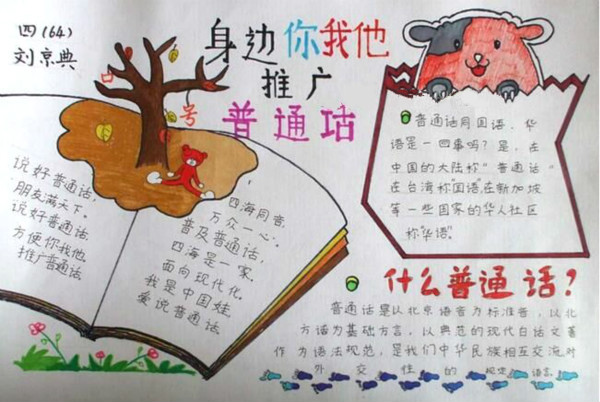 四(64)
刘京典
身边你我他
推广
普通话
号
说好普通话,
朋友满天下。
说好普通话.
方便你我他.
推广普通话.
四海同音,
万众一心.
普及普通话,
四海是一家.
面向现代化.
我是中国娃.
爱说普通话.
普通话同国语、华
语是一回事吗?是,在
中国的大陆称"普通话"
在台湾称"国语"在新加坡
等一些国家的华人社区
称"华语".
什么普通话?
普通话是以北京语音为标准音,以北
方话为基础方言,以典范的现代白话文著
作为语法规范,是我们中华民族相互交流对
外交性的规定语言.